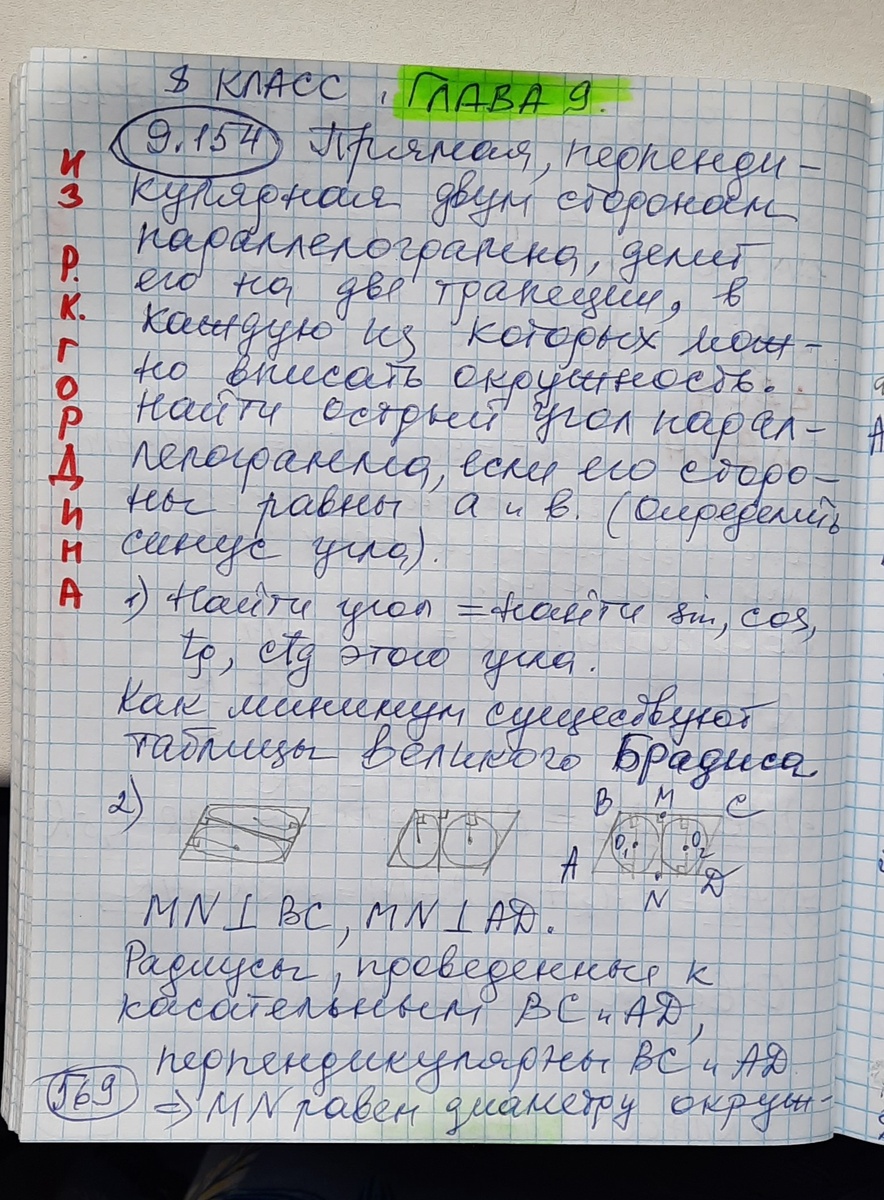 8 КЛАСС, ГЛАВА 9.
9.154 Прямая, перпенди-
кулярная двум сторонам
параллелограмма, делит
его на две трапеции, в
каждую из которых мож-
но вписать окружность.
Найти острый угол парал-
лелограмма, если его сторо-
ны равны a и b. (Определить
синус угла).
ИЗ Р.К. ГОРДИНА
1) Найти угол = найти sin, cos,
tg, ctg этого угла.
Как минимум существуют
таблицы великого Брадиса
2)
B M C
O1 O2
A N D
MN ⊥ BC, MN ⊥ AD.
Радиусы, проведенные к
касательным BC и AD,
перпендикулярны BC и AD
569 => MN равен диаметру окруж-